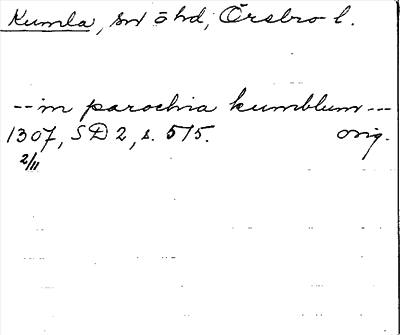 Kumla, sn ö hd, Örebro l.
-- in parochia kumblum ---
1307, SD 2, s. 575. orig.
2/11